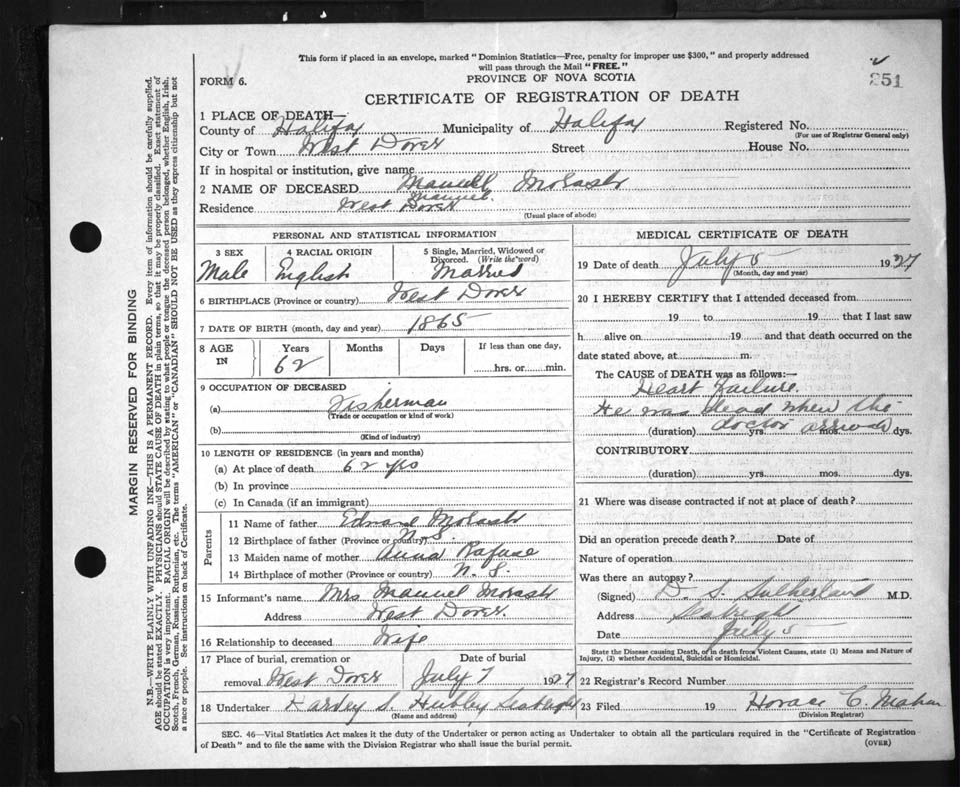 This form if placed in an envelope, marked "Dominion Statistics—Free, penalty for improper use $300," and properly addressed
will pass through the Mail "FREE."
FORM 6.
PROVINCE OF NOVA SCOTIA
251
CERTIFICATE OF REGISTRATION OF DEATH
1 PLACE OF DEATH—
County of Halifax Municipality of Halifax Registered No.
(For use of Registrar General only)
City or Town West Dover Street House No.
If in hospital or institution, give name
2 NAME OF DECEASED Manuel Morash
Manuel.
Residence West Dover
(Usual place of abode)
PERSONAL AND STATISTICAL INFORMATION
3 SEX 4 RACIAL ORIGIN 5 Single, Married, Widowed or
Divorced. (Write the word)
Male English Married
6 BIRTHPLACE (Province or country) West Dover
7 DATE OF BIRTH (month, day and year) 1865
8 AGE IN Years Months Days If less than one day,
62 hrs. or min.
9 OCCUPATION OF DECEASED
(a) Fisherman
(Trade or occupation or kind of work)
(b)
(Kind of industry)
10 LENGTH OF RESIDENCE (in years and months)
(a) At place of death 62 yrs
(b) In province
(c) In Canada (if an immigrant)
Parents
11 Name of father Edward Morash
12 Birthplace of father (Province or country) N.S.
13 Maiden name of mother Anna Rafuse
14 Birthplace of mother (Province or country) N. S.
15 Informant's name Mrs Manuel Morash
Address West Dover
16 Relationship to deceased Wife
17 Place of burial, cremation or Date of burial
removal West Dover July 7 1927
18 Undertaker Harvey S. Hubley Seabright
(Name and address)
MEDICAL CERTIFICATE OF DEATH
19 Date of death July 5 1927
(Month, day and year)
20 I HEREBY CERTIFY that I attended deceased from
19 to 19 that I last saw
h alive on 19 and that death occurred on the
date stated above, at m.
The CAUSE of DEATH was as follows:—
Heart Failure.
He was dead when the
doctor arrived
(duration) yrs. mos. dys.
CONTRIBUTORY
(duration) yrs. mos. dys.
21 Where was disease contracted if not at place of death?
Did an operation precede death? Date of
Nature of operation
Was there an autopsy?
(Signed) D. S. Sutherland M.D.
Address Seabright
Date July 5
State the Disease causing Death, or in death from Violent Causes, state (1) Means and Nature of
Injury, (2) whether Accidental, Suicidal or Homicidal.
22 Registrar's Record Number
23 Filed 19 Horace C.
(Division Registrar)
SEC. 46—Vital Statistics Act makes it the duty of the Undertaker or person acting as Undertaker to obtain all the particulars required in the "Certificate of Registration
of Death" and to file the same with the Division Registrar who shall issue the burial permit.
(OVER)
MARGIN RESERVED FOR BINDING
N.B.—WRITE PLAINLY WITH UNFADING INK—THIS IS A PERMANENT RECORD. Every item of information should be carefully supplied.
AGE should be stated EXACTLY. PHYSICIANS should STATE CAUSE OF DEATH in plain terms, so that it may be properly classified. Exact statement of
OCCUPATION is very important. RACIAL ORIGIN will be described by stating to what people or tongue the deceased person belonged, whether English, Irish,
Scotch, French, German, Russian, Ruthenian, etc. The terms "AMERICAN" or "CANADIAN" SHOULD NOT BE USED as they express citizenship but not
a race or people. See instructions on back of Certificate.